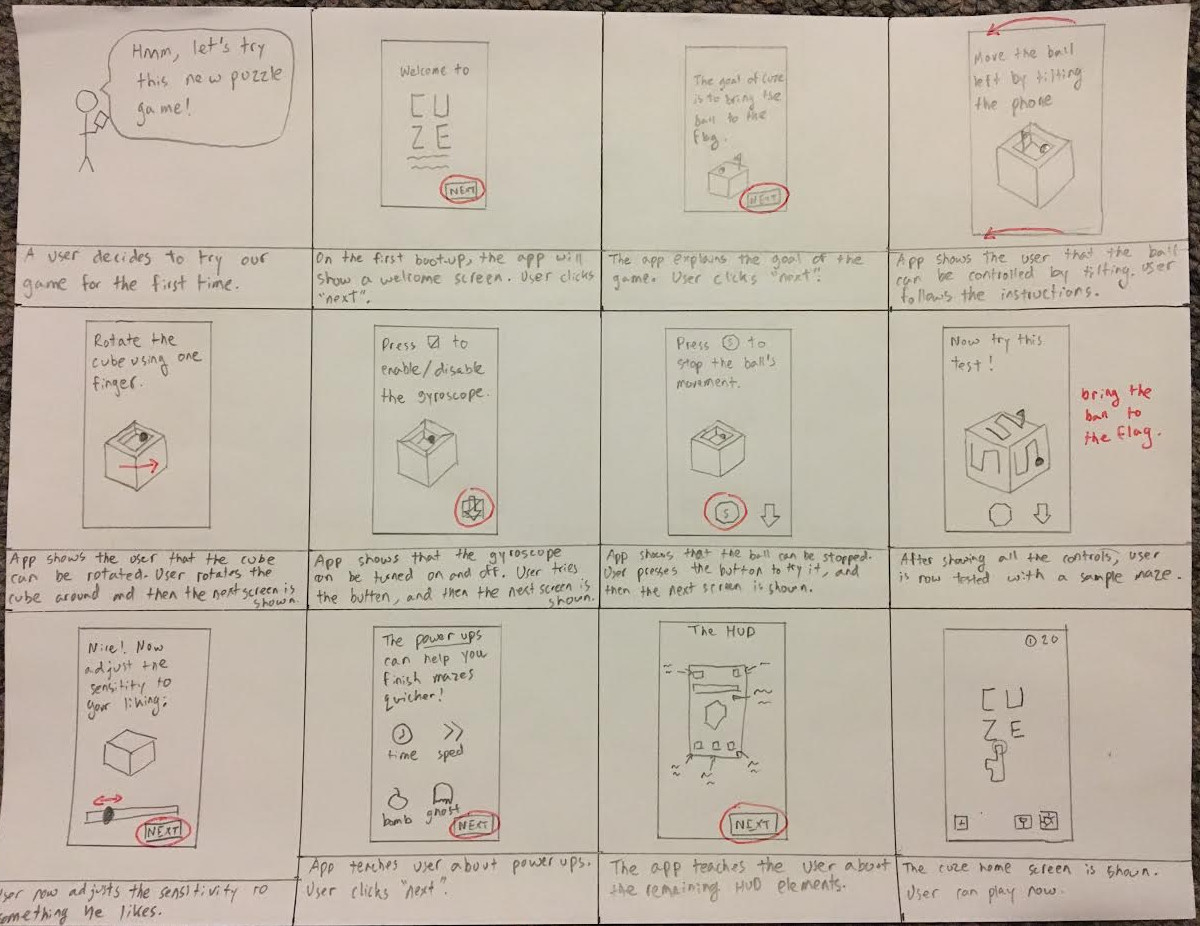 Hmm, let's try
this new puzzle
game!
A user decides to try our
game for the first time.
Welcome to
CU
ZE
NEXT
On the first bootup, the app will
show a welcome screen. User clicks
"next".
The goal of cuze
is to bring the
ball to the
flag.
NEXT
The app explains the goal of the
game. User clicks "next".
Move the ball
left by tilting
the phone
App shows the user that the ball
can be controlled by tilting. User
follows the instructions.
Rotate the
cube using one
finger.
App shows the user that the cube
can be rotated. User rotates the
cube around and then the next screen is
shown.
Press to
enable/disable
the gyroscope.
App shows that the gyroscope
can be turned on and off. User tries
the button, and then the next screen is
shown.
Press S to
stop the ball's
movement.
S
App shows that the ball can be stopped.
User presses the button to try it, and
then the next screen is shown.
Now try this
test!
bring the
ball to
the flag.
After showing all the controls, user
is now tested with a sample maze.
Nice! Now
adjust the
sensitity to
your liking:
NEXT
User now adjusts the sensitivity to
something he likes.
The power ups
can help you
finish mazes
quicher!
time sped
bomb ghost
NEXT
App teaches user about power ups.
User clicks "next".
The HUD
NEXT
The app teaches the user about
the remaining HUD elements.
20
CU
ZE
The cuze home screen is shown.
User can play now.